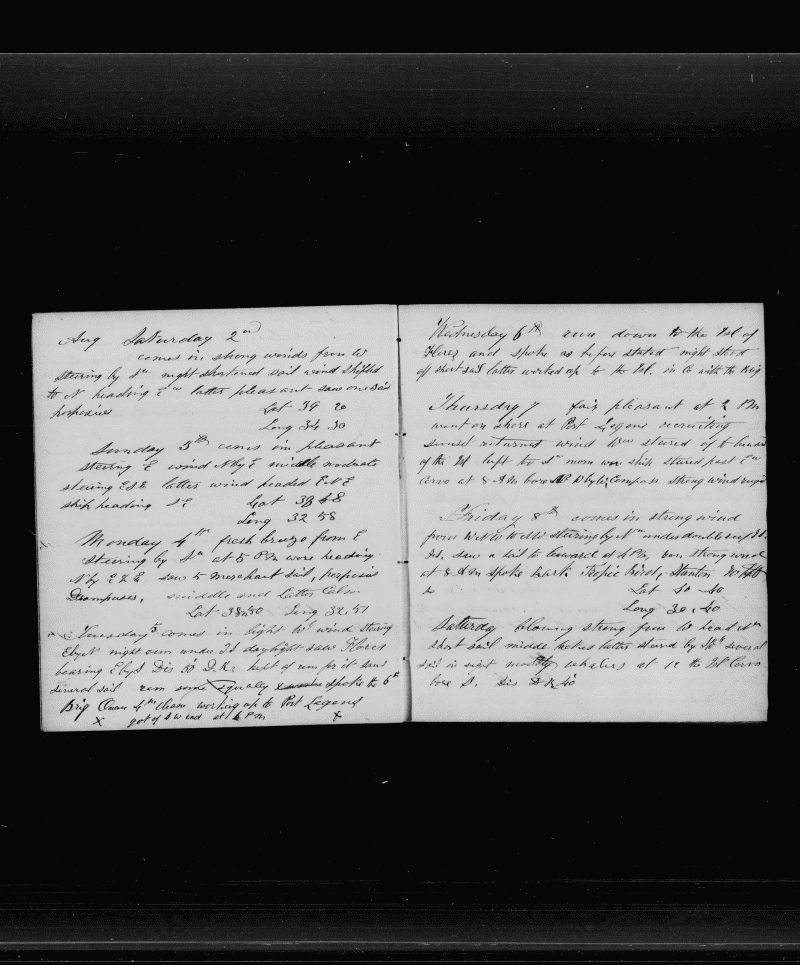 Aug Saturday 2nd
comes in strong winds from W
steering by Sn night shortened sail wind shifted
to N heading En latter pleasant saw one sail
porposies
Lat 39 20
Long 34 30
Sunday 3th comes in pleasant
steering E wind NbyE middle moderate
steering ESE latter wind headed ENE
ship heading SE Lat 38 48
Long 32 58
Monday 4th fresh breeze from E
steering by Sn at 5 PM wore heading
NbyE saw 5 merchant sail, porposies
Grampuses, middle and Latter Calm
Lat 38,50 Long 32,51
Tuesday 5 comes in light Wn wind steering
EbyN night run under daylight saw Flores
bearing EbyS Dis 50 run for it saw
several sail run some spoke the 6th
Brig working up to Port
X got of wind at 4 PM X
Wednesday 6th run down to the Isl of
Flores and spoke as before stated night stood
off short sail latter worked up to the Isl. in Co with the Brig
Thursday 7 fair pleasant at 2 PM
went on shore at Port recruiting
sunset returned wind stered of to
of the Isl kept to Sn morn wore ship stered past En
Corvo at 8 AM bore by Compass strong wind
Friday 8th comes in strong wind
from steering by Nn under double reef
saw a sail to leward at 4 PM, run strong wind
at 8 AM spoke Bark Tropic Bird, Stanton
Lat 40 40
Long 30,40
Saturday blowing strong from W head
short sail middle latter steered by several
sail in sight mostly whalers at the Isl Corvo
bore S. Dis 40